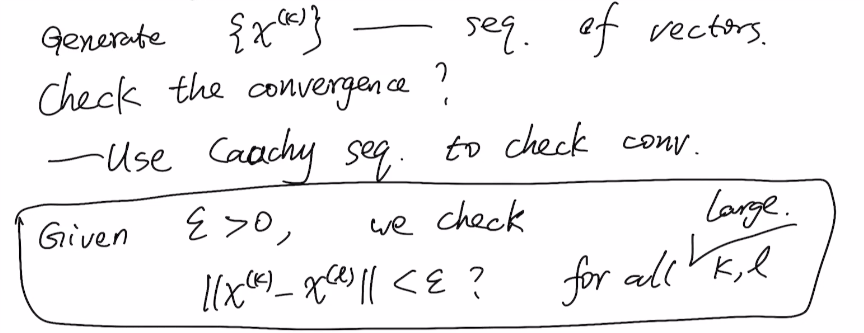 Generate {x^(k)} — seq. of vectors.
Check the convergence?
— Use Caachy seq. to check conv.
Given ε>0, we check large.
||x^(k) – x^(l)|| < ε ? for all k, l